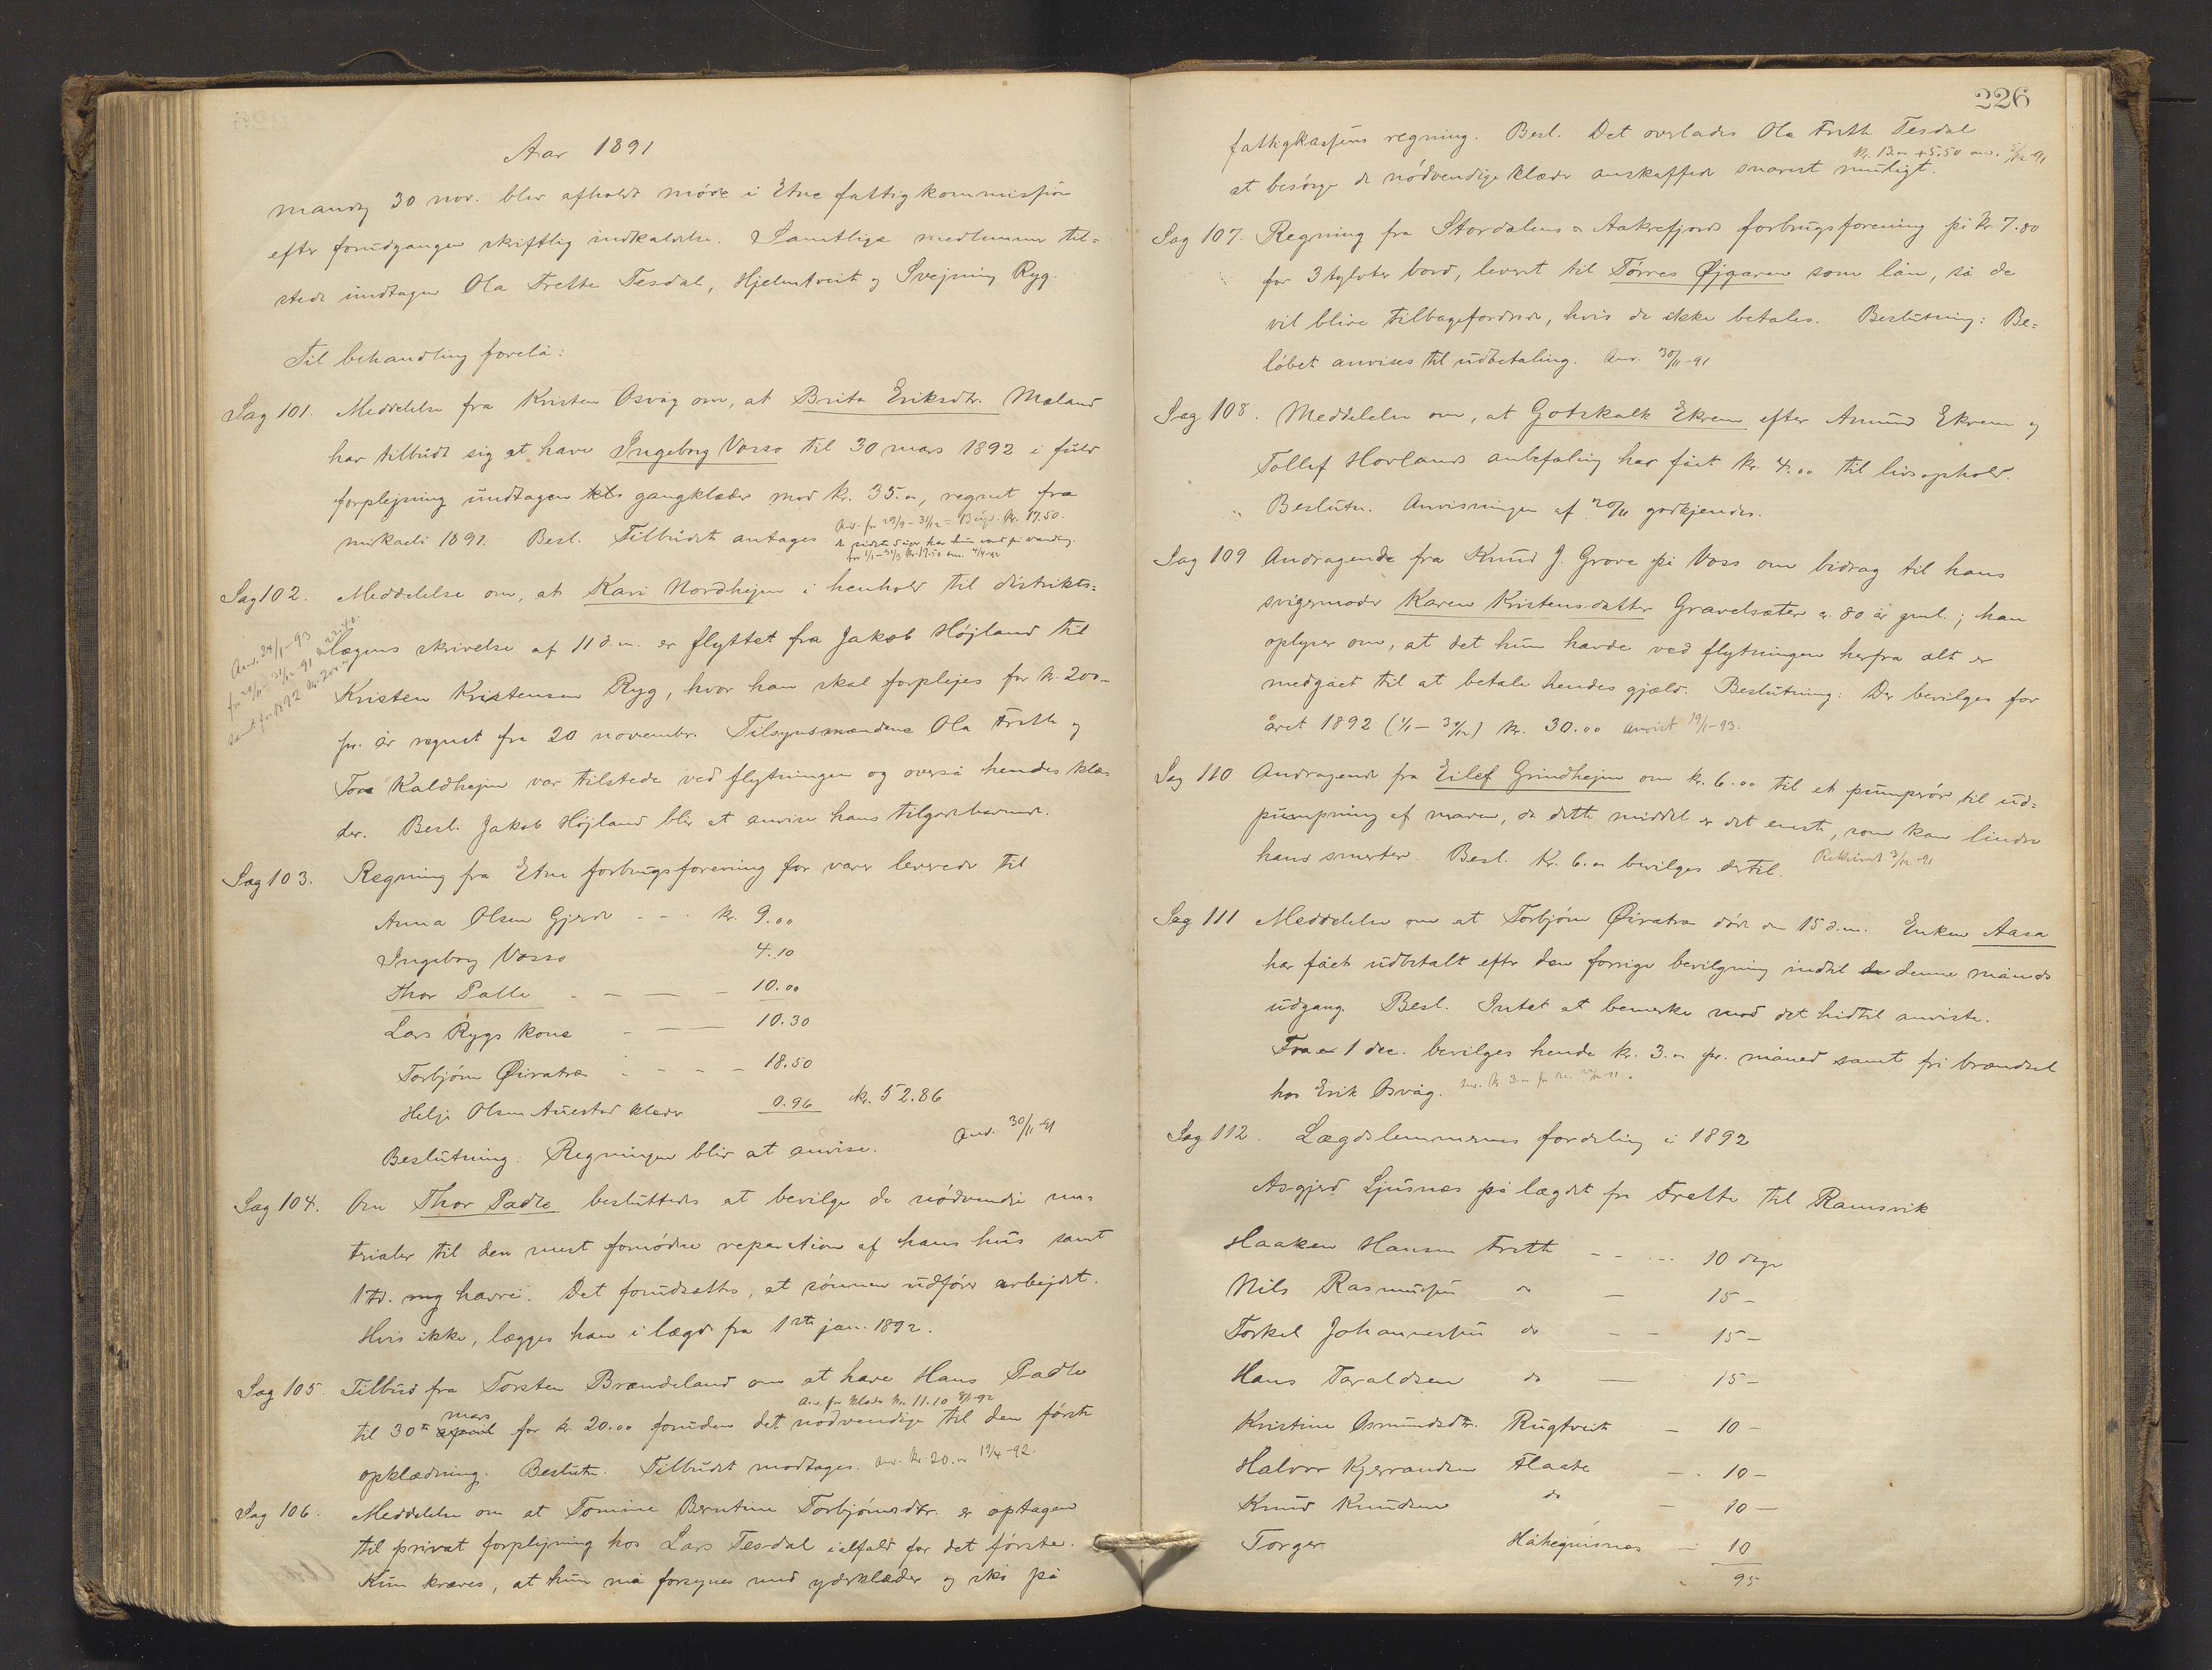 Aar 1891
mandag 30 nov. blev afholdt møde i Etne fattigkommission
efter forudgangen skriftlig indkaldelse. Samtlige medlemmer til-
stede undtagen Ola Frette Tesdal, Hjelmtveit og Svejning Ryg.
Til behandling forelå:
Sag 101. Meddelelse fra Kristen Osvåg om, at Brita Eriksdtr. Mæland
har tilbudt sig at have Ingeborg Vosso til 30 mars 1892 i fuld
forplejning undtagen gangklæder mod kr. 35.00, regnet fra
mikaeli 1891. Besl. Tilbudet antages
Anv. fr 29/9 - 31/12 = kr. 17.50.
de sidste 5 uger har hun vært på vanding.
for 1/1 - 31/3 kr. 17.50 anv. 4/4-92
Sag 102. Meddelelse om, at Kari Nordhejm i henhold til distrikts-
lægens skrivelse af 11 d.m. er flyttet fra Jakob Højland til
Anv. 24/1-93
fr 20/11 - 31/12-91 22.40
samt for 1892 kr. 200.00
Kristen Kristensen Ryg, hvor han skal forplejes for kr. 200-
pr. år regnet fra 20 november. Tilsynsmændene Ola Frette og
Tore Kaldhejm var tilstede ved flytningen og overså hendes klæ-
der. Besl. Jakob Højland blir at anvise hans tilgodehavende.
Sag 103. Regning fra Etne forbrugsforening for varer leverede til
Anna Olsen Gjerde - - - kr. 9.00
Ingeborg Vosso 4.10
Thor Palle - - - 10.00
Lars Rygs kone - - - 10.30
Torbjørn Øiratræ - - - - 18.50
Helje Olsen Auestad klæder 0.96 kr. 52.86
Beslutning. Regningen blir at anvise. Anv. 30/11-91
Sag 104. Om Thor Padle besluttedes at bevilge de nødvendige ma-
trialer til den mest fornødne reparation af hans hus samt
1 td. havre. Det forudsættes, at sønnen udfører arbejdet.
Hvis ikke, lægges han i lægd fra 1ste jan. 1892.
Sag 105. Tilbud fra Torsten Brændeland om at have Hans Padle
Anv. for klæder kr. 11.10 8/1-92
mars
til 30te april for kr. 20.00 foruden det nødvendige til den første
opklædning. Beslutn. Tilbudet modtages. Anv. kr. 20.00 19/4-92.
Sag 106. Meddelelse om at Tomine Berntine Torbjørnsdtr. er optagen
til privat forplejning hos Lars Tesdal ialfald for det første.
Kun kræves, at hun må forsynes med yderklæder og sko på
226
fattigkassens regning. Besl. Det overlades Ola Frette Tesdal
kr. 13.00 + 5.50 anv. 5/12-91
at besørge de nødvendige klæder anskaffede snarest muligt.
Sag 107. Regning fra Stordalens & Aakrefjords forbrugsforening på kr 7.80
for 3 tylvter bord, leveret til Tørres Øjgaren som lån, så de
vil blive tilbagefordrede, hvis de ikke betales. Beslutning: Be-
løbet anvises til udbetaling. Anv. 30/11-91
Sag 108. Meddelelse om, at Gotskalk Ekrem efter Amund Ekrem og
Tollef Hovlands anbefaling har fået kr. 4.00 til livsophold.
Beslutn. Anvisningen af 20/11 godkjendes.
Sag 109 Andragende fra Knud J. Grove på Voss om bidrag til hans
svigermoder Karen Kristensdatter Gravelsæter c. 80 år gml.; han
oplyser om, at det hun havde ved flytningen herfra alt er
medgået til at betale hendes gjæld. Beslutning: Der bevilges for
året 1892 (1/1 - 31/12) kr. 30.00 anvist 19/1-93.
Sag 110 Andragende fra Eilef Grindhejm om kr. 6.00 til et pumperør til ud-
pumpning af maven, da dette middel er det eneste, som kan lindre
hans smerter. Besl. Kr. 6.00 bevilges dertil. Rekvireret 3/12-91
Sag 111 Meddelelse om at Torbjørn Øiratræ døde den 15 d.m. Enken Aasa
har fået udbetalt efter den forrige bevilgning indtil denne måneds
udgang. Besl. Intet at bemerke mod det hidtil anviste.
Fra 1 dec. bevilges hende kr. 3.00 pr. måned samt fri brændsel
hos Erik Osvåg.
Sag 112. Lægdslemmernes fordeling i 1892
Asgjerd Ljusnes på lægdet fra Frette til Ramsvik
Haaken Hansen Frette - - - - - 10 dage
Nils Rasmussen do - 15 -
Torkel Johannessen do - - 15 -
Hans Taraldsen do - 15 -
Kristine Osmundsdtr. Rugtveit - 10 -
Halvor Kjerrandsen Flaate - - 10 -
Knud Knudsen do - 10 -
Torger Håheguisnes - 10
95